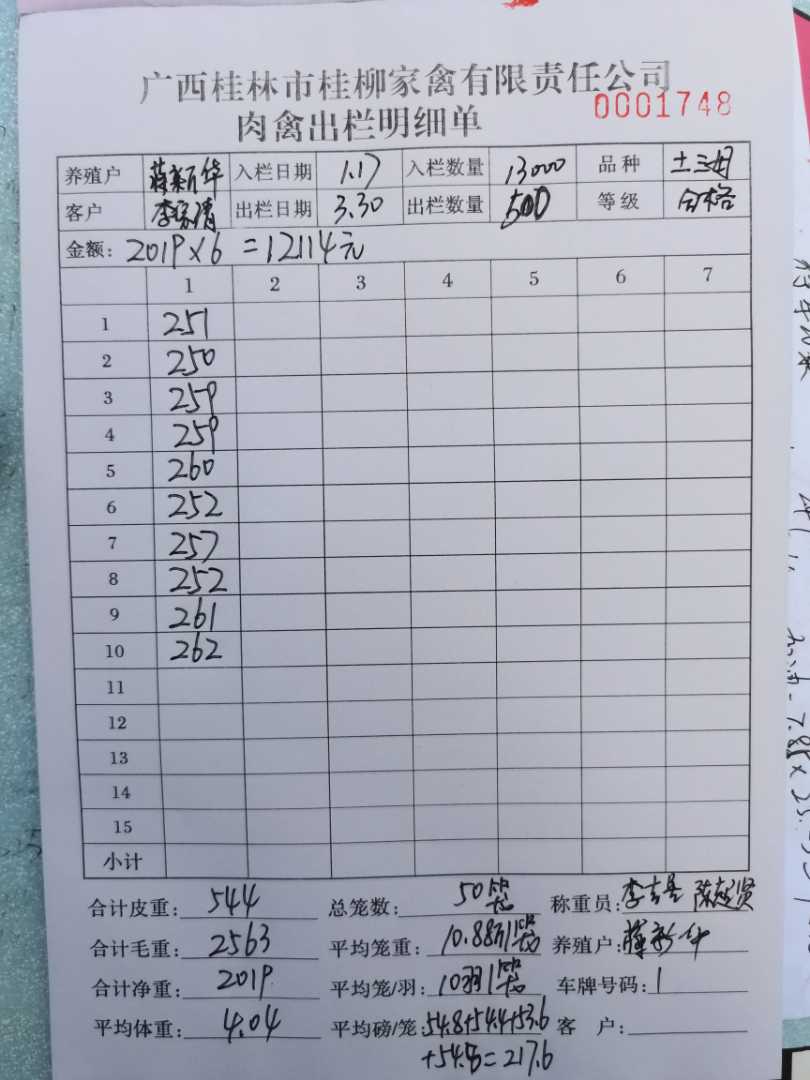 广西桂林市桂柳家禽有限责任公司
肉禽出栏明细单 0001748
养殖户 蒋新华 入栏日期 1.17 入栏数量 13000 品种 土三母
客户 出栏日期 3.30 出栏数量 500 等级 合格
金额: 2019×6=12114元
1 2 3 4 5 6 7
1 251
2 250
3 259
4 259
5 260
6 252
7 257
8 252
9 261
10 262
11
12
13
14
15
小计
合计皮重: 544 总笼数: 50笼 称重员:
合计毛重: 2563 平均笼重: 10.88斤/笼 养殖户: 蒋新华
合计净重: 2019 平均笼/羽: 10羽/笼 车牌号码: 1
平均体重: 4.04 平均磅/笼: 54.8+54.4+53.6 客 户:
+54.8=217.6